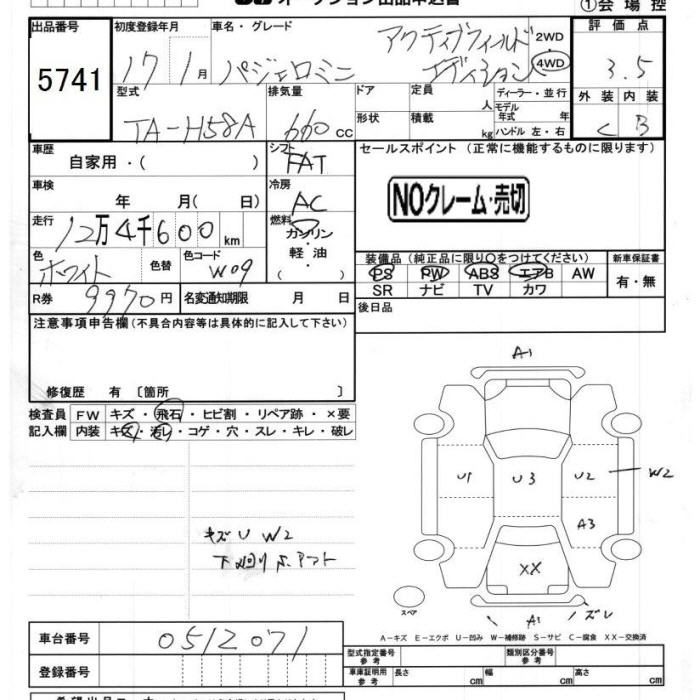 ①会場控
出品番号 初度登録年月 車名・グレード 評価点
5741 17 1月 パジェロミニ アクティブフィールドエディション 2WD 4WD 3.5
型式 排気量 ドア 定員 人 ディーラー・並行 外装 内装
TA-H58A 660cc 形状 積載 kg モデル年式 年 ハンドル 左・右 C B
車歴 自家用・( ) シフト FAT セールスポイント (正常に機能するものに限ります)
車検 年 月( 日) 冷房 AC
NOクレーム・売切
走行 12万4千600km 燃料 ガソリン・軽油・( )
色 ホワイト 色替 色コード W09
装備品 (純正品に限り○をつけてください) 新車保証書
PS PW ABS エアB AW 有・無
SR ナビ TV カワ
R券 9970円 名変通知期限 月 日 後日品
注意事項申告欄(不具合内容等は具体的に記入して下さい)
修復歴 有 〔箇所 〕
検査員 FW キズ・飛石・ヒビ割・リペア跡・×要
記入欄 内装 キズ・汚レ・コゲ・穴・スレ・キレ・破レ
A1
U1 U3 U2 W2
A3
キズ U W2
下廻り
XX
スペア
A1 ズレ
A-キズ E-エクボ U-凹み W-補修跡 S-サビ C-腐食 XX-交換済
車台番号 0512071
型式指定番号 参考 類別区分番号 参考
登録番号 車庫証明用 参考 長さ cm 幅 cm 高さ cm